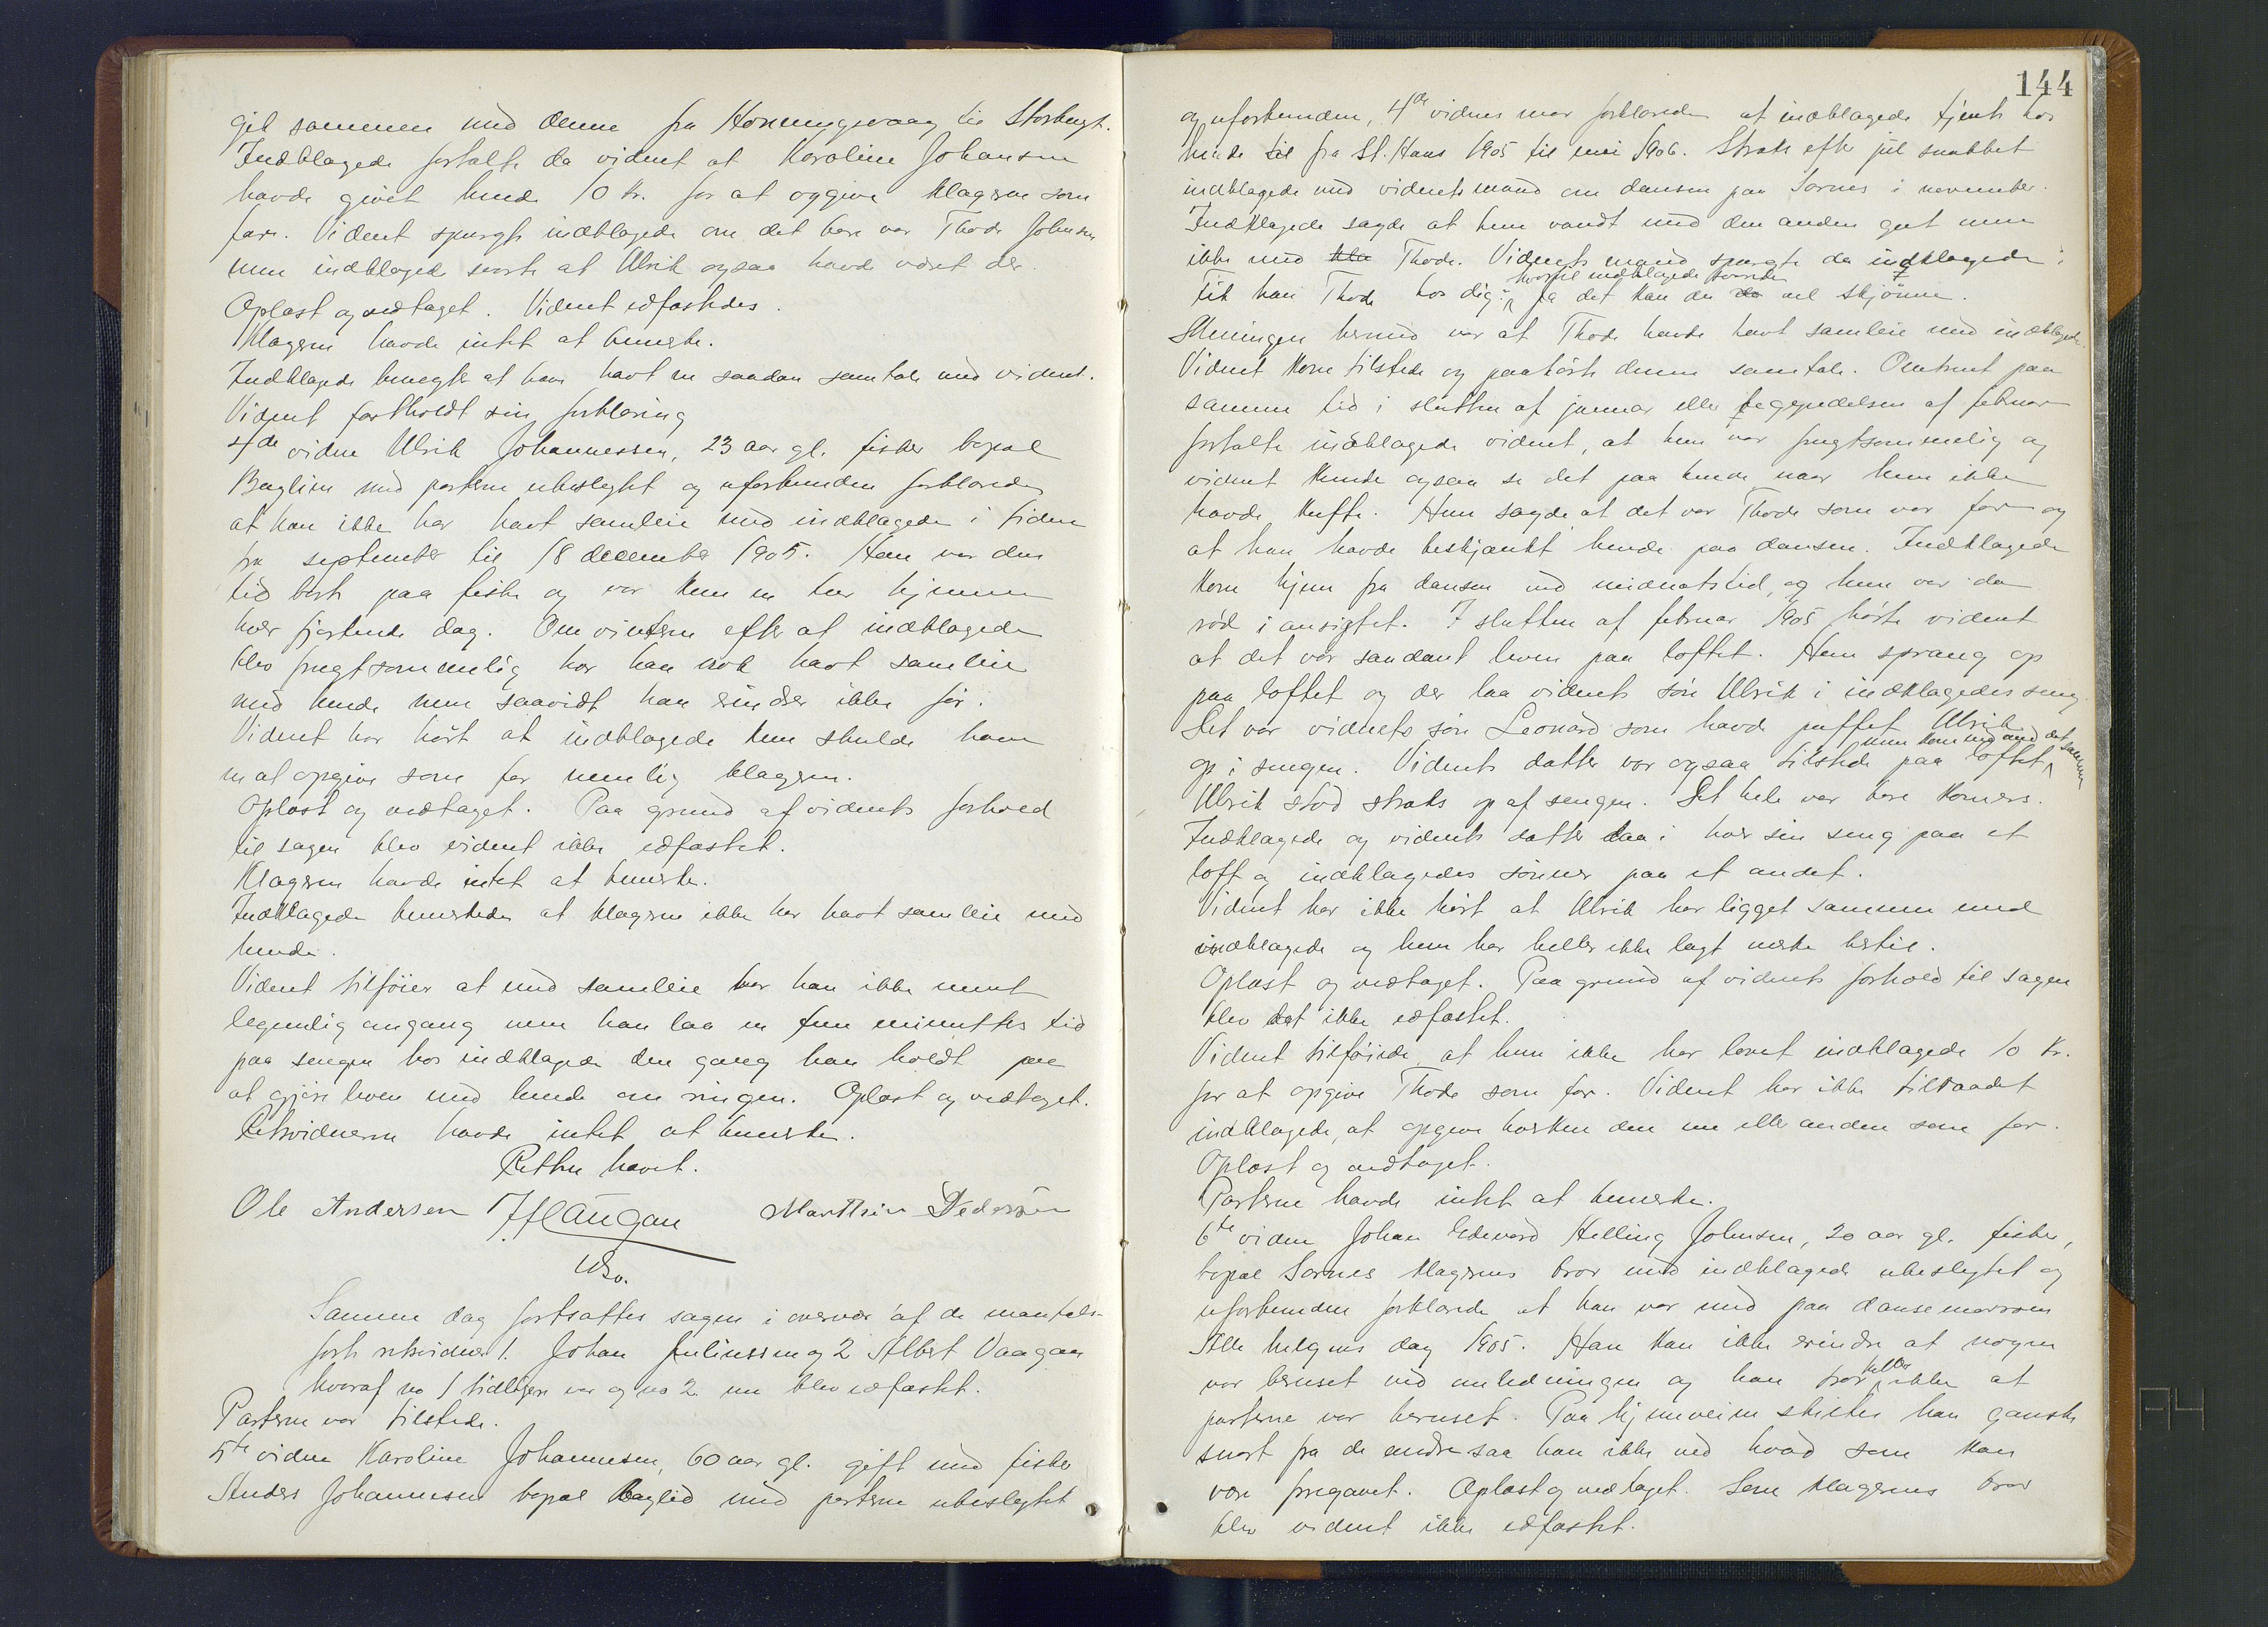 gik sammen med denne fra Honningsvaag til Storbugt.
Indklagede fortalte da vidnet at Karoline Johansen
havde givet hende 10 kr. for at opgive klageren som
far. Vidnet spurgte indklagede om det bare var Thode Johnsen
men indklagede svarte at Ulrik ogsaa havde været der.
Oplæst og vedtaget. Vidnet edfæstedes.
Klageren havde intet at bemerke.
Indklagede benegter at have havt en saadan samtale med vidnet.
Vidnet fastholdt sin forklaring
4de vidne Ulrik Johannessen, 23 aar gl. fisker bopæl
Baglien med parterne ubeslegtet og uforbunden forklarede
at han ikke har havt samleie med indklagede i tiden
fra september til 18 december 1905. Han var den
tid borte paa fiske og var kun en tur hjemme
hver fjortende dag. Om vinteren efter at indklagede
blev frugtsommelig har han nok havt samleie
med hende men saavidt han erindrer ikke før.
Vidnet har hørt at indklagede kun skulde have
en at opgive som far nemlig klageren.
Oplæst og vedtaget. Paa grund af vidnets forhold
til sagen blev vidnet ikke edfæstet.
Klageren havde intet at bemerke.
Indklagede bemerkede at klageren ikke har havt samleie med
hende.
Vidnet tilføier at med samleie har han ikke ment
legemlig omgang men han laa en fem minutters tid
paa sengen hos indklagede den gang han holdt paa
at gjøre leven med hende om ringen. Oplæst og vedtaget.
Retsvidnerne havde intet at bemerke.
Retten hævet.
Ole Andersen J. Haugan Marthin Pedersen
Samme dag fortsattes sagen i overvær af de mantals-
førte retsvidner 1. Johan Juliussen og 2 Albert Vaagan
hvoraf no 1 tidligere var og no 2 nu blev edfæstet.
Parterne var tilstede.
5te vidne Karoline Johannesen, 60 aar gl. gift med fisker
Anders Johannesen bopæl Baglid med parterne ubeslegtet
144
og uforbunden, 4de vidnes mor forklarede at indklagede tjente hos
hende til fra St. Hans 1905 til mai 1906. Straks efter jul snakket
indklagede med vidnets mand om dansen paa Sarnes i november.
Indklagede sagde at hun vandt med den anden gut men
ikke med Thode. Vidnets mand spurgte da indklagede:
hvortil indklagede svarede
Fik han Thode hos dig? Ja det kan du vel skjønne.
Meningen hermed var at Thode havde havt samleie med indklagede.
Vidnet kom tilstede og paahørte denne samtale. Omtrent paa
samme tid i slutten af januar eller begyndelsen af februar
fortalte indklagede vidnet, at hun var frugtsommelig og
vidnet kunde ogsaa se det paa hende naar hun ikke
havde kufte. Hun sagde at det var Thode som var far og
at han havde beskjænkt hende paa dansen. Indklagede
kom hjem fra dansen ved midnatstid, og hun var da
rød i ansigtet. I slutten af februar 1905 hørte vidnet
at det var saadant leven paa loftet. Hun sprang op
paa loftet og der laa vidnets søn Ulrik i indklagedes seng.
Det var vidnets søn Leonard som havde puffet Ulrik
men kom ned med det samme
op i sengen. Vidnets datter var ogsaa tilstede paa loftet
Ulrik stod straks op af sengen. Det hele var bare komers.
Indklagede og vidnets datter laa i hver sin seng paa et
loft og indklagedes sønner paa et andet.
Vidnet har ikke hørt at Ulrik har ligget sammen med
indklagede og hun har heller ikke lagt merke hertil.
Oplæst og vedtaget. Paa grund af vidnets forhold til sagen
blev det ikke edfæstet.
Vidnet tilføiede at hun ikke har lovet indklagede 10 kr.
for at opgive Thode som far. Vidnet har ikke tilraadet
indklagede, at opgive hverken den ene eller anden som far.
Oplæst og vedtaget.
Parterne havde intet at bemerke.
6te vidne Johan Edevard Helling Johnsen, 20 aar gl. fisker,
bopæl Sarnes klagerens bror med indklagede ubeslegtet og
uforbunden forklarede at han var med paa dansemorroen
Alle helgens dag 1905. Han kan ikke erindre at nogen
var beruset ved anledningen og han tror heller ikke at
parterne var beruset. Paa hjemveien skiltes han ganske
snart fra de andre saa han ikke ved hvad som kan
være foregaaet. Oplæst og vedtaget. Som klagerens bror
blev vidnet ikke edfæstet.